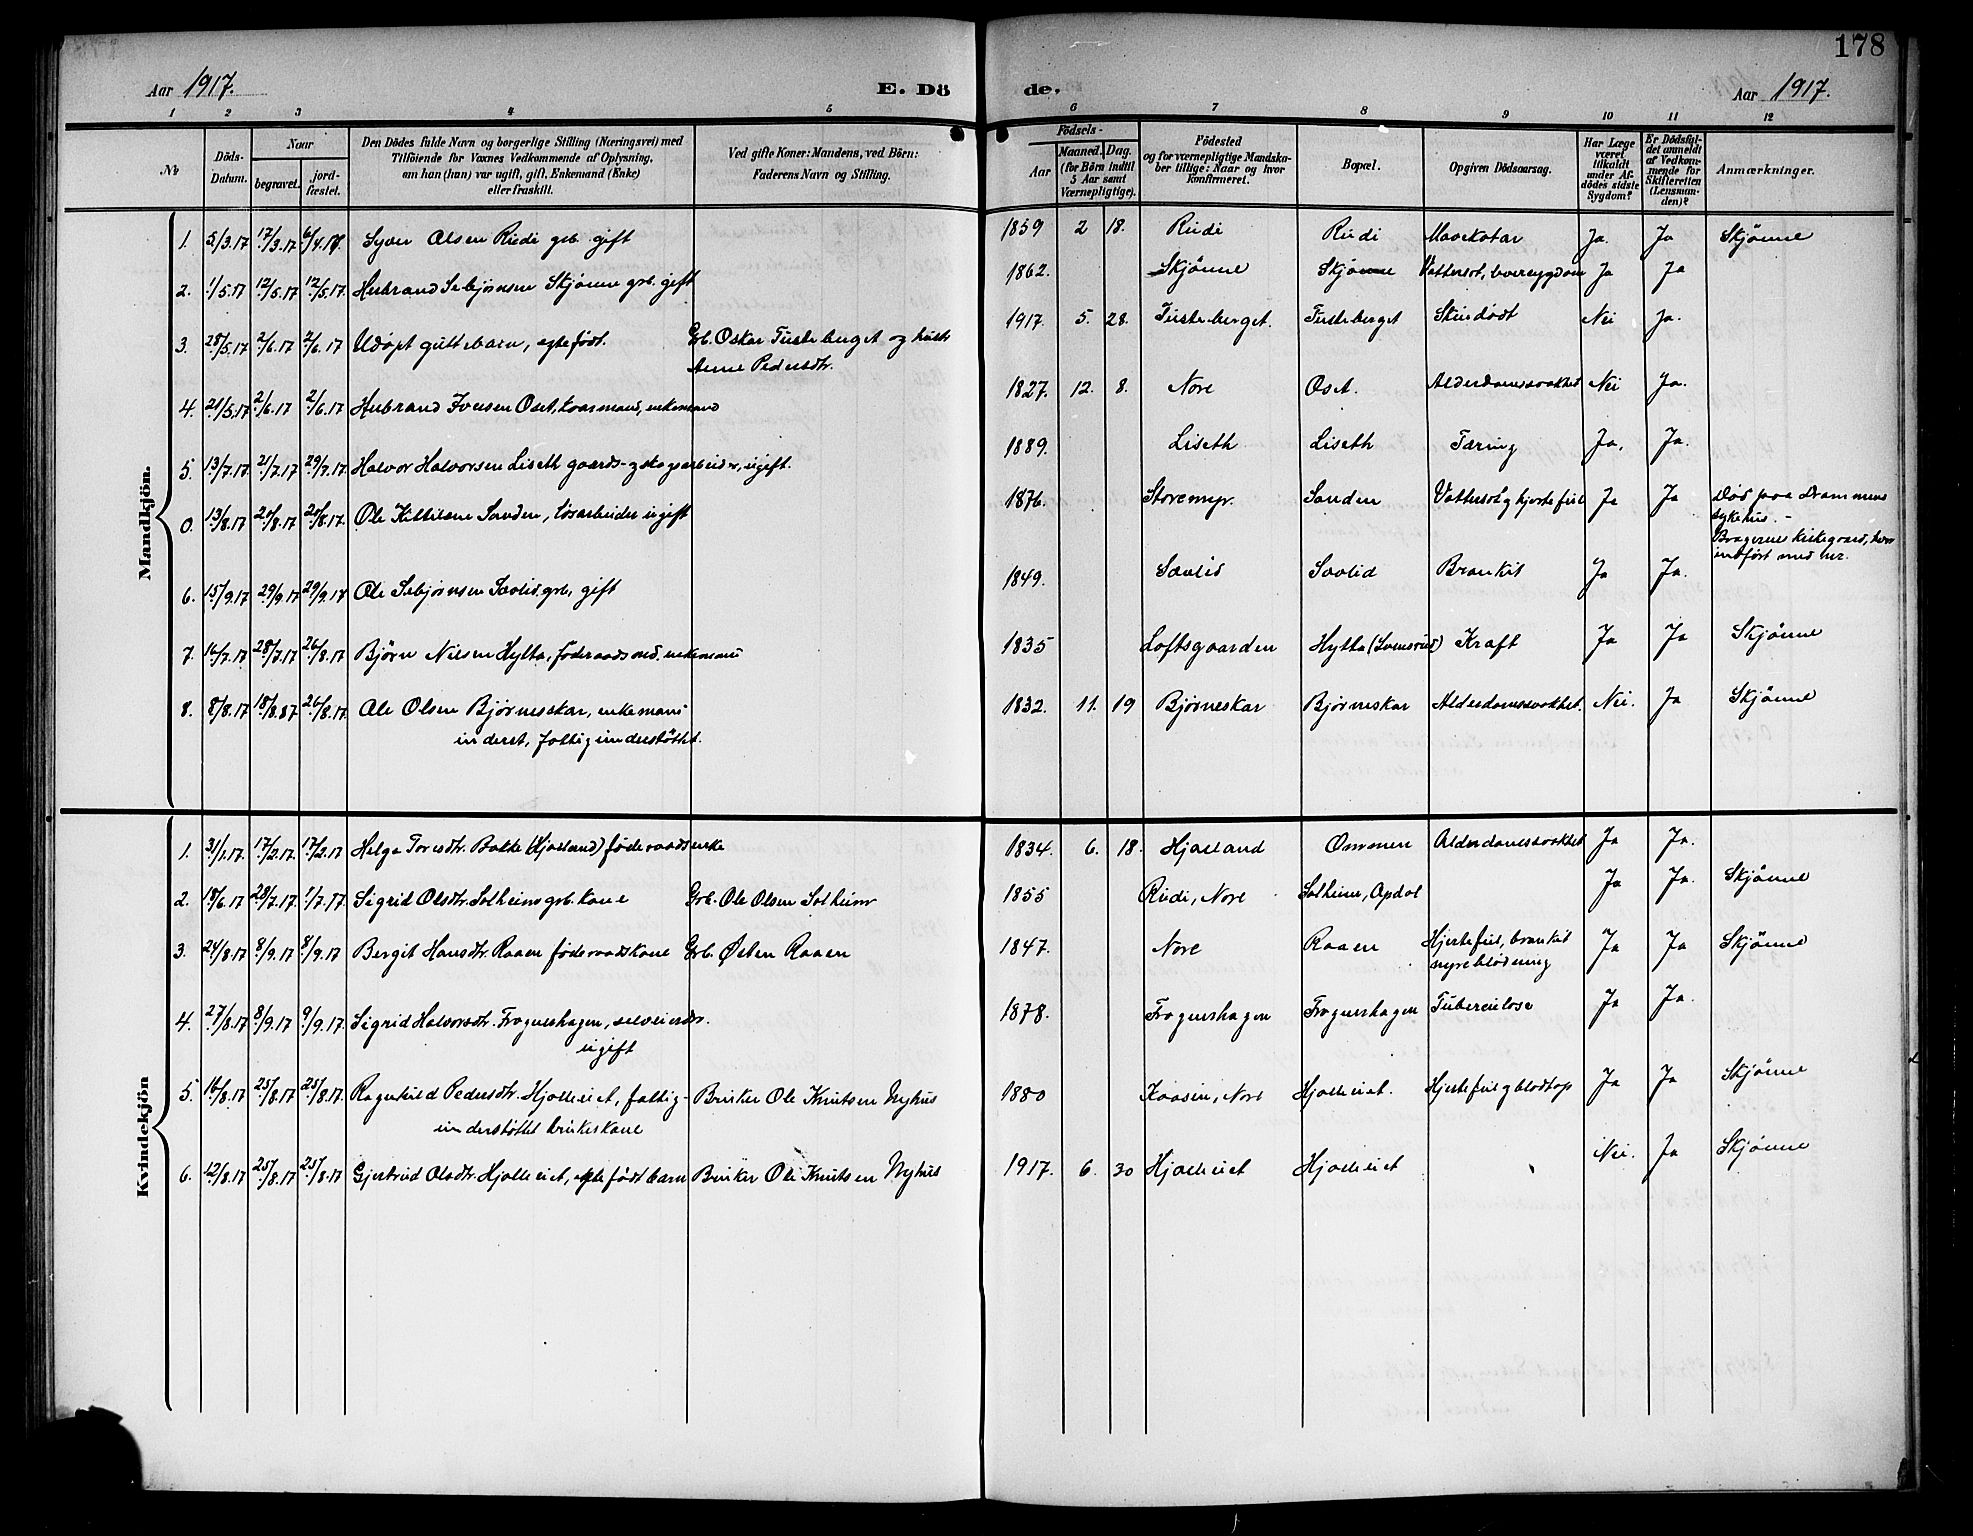 178
Aar 1917.
E. Dö
de.
Aar 1917.
1 2 3 4 5 6 7 8 9 10 11 12
№
Döds-
Datum.
Naar
begravet.
jord-
fæstet.
Den Dödes fulde Navn og borgerlige Stilling (Næringsvei) med
Tilföiende for Voxnes Vedkommende af Oplysning,
om han (hun) var ugift, gift, Enkemand (Enke)
eller fraskilt.
Ved gifte Koner: Mandens, ved Börn:
Faderens Navn og Stilling.
Födsels-
Aar
Maaned. Dag.
(for Børn indtil
5 Aar samt
Værnepligtige).
Födested
og for værnepligtige Mandska-
ber tillige: Naar og hvor
konfirmeret.
Bopæl.
Opgiven Dödsaarsag.
Har Læge
været
tilkaldt
under Af-
dödes sidste
Sygdom?
Er Dödsfal-
det anmeldt
af Vedkom-
mende for
Skifteretten
(Lensman-
den)?
Anmærkninger.
Mandkjön.
1. 5/3.17 17/3.17 6/4.17 Syver Olsen Rudi grb. gift 1859 2 18. Rudi Rudi Mavekatar Ja. Ja Skjønne
2. 1/5.17 12/5.17 12/5.17. Herbrand Sebjørnsen Skjønne grb. gift 1862. Skjønne Skjønne Vattersot, Ja Ja
3. 28/5.17 2/6.17 2/6.17 Udøpt guttebarn, egtefødt. Grb. Oskar Tusteberget og hustr. 1917. 5. 28. Tusteberget. Tusteberget Skindødt Nei Ja.
Anne Pedersdtr.
4. 21/5.17 2/6.17 2/6.17 Herbrand Iversen Oset, enkemand 1827. 12. 8. Nore Oset. Alderdomssvakhet Nei Ja.
5. 13/7.17 21/7.17 29/7.17. Halvor Halvorsen Liseth gaards- og skogsarbeider, ugift. 1889. Liseth Liseth Tæring Ja. Ja.
0. 13/8.17 20/8.17 20/8.17. Ole Kittilsen Sanden, løsarbeider ugift 1876. Storemyr. Sanden Vattersot og hjertefeil Ja Ja Død paa Drammens
sykehus. -
Bragernes kirkegaard, her
indført med nr.
6. 15/9.17 29/9.17 29/9.17 Ole Sebjørnsen Savlid grb. gift 1849. Savlid Savlid Bronkit Ja Ja.
7. 16/7.17 28/7.17 26/8.17 Bjørn Nilsen Hylta, føderaadsmd. enkemand 1835 Loftsgaarden Hytta (Svensrud) Kræft Ja Ja Skjønne
8. 8/8.17 18/8.87 26/8.17. Ole Olsen Bjørneskar, enkemand 1832. 11. 19 Bjørneskar Bjørneskar Alderdomssvakhet. Nei. Ja Skjønne
inderst, fattigunderstøttet.
Kvindekjön
1. 31/1.17. 17/2.17. 17/2.17 Helga Toresdtr. Bakke (Hjaeland) føderaadsenke 1834. 6. 18. Hjaeland Ommen Alderdomssvakhet Ja Ja.
2. 18/6.17 28/7.17 1/7.17. Sigrid Olsdtr. Solheim grb. kone Grb. Ole Olsen Solheim 1855 Rudi, Nore Solheim, Opdal Ja Ja. Skjønne
3. 24/8.17 8/9.17 8/9.17 Bergit Hansdtr. Raaen føderaadskone Grb. Østen Raaen 1847. Nore Raaen Hjertefeil, bronkit Ja Ja Skjønne
nyreblødning
4. 27/8.17 8/9.17 9/9.17. Sigrid Halvorsdtr. Frognerhagen, selveierdtr. 1878. Frognerhagen Frognerhagen Tuberculose Ja Ja.
ugift
5. 16/8.17 25/8.17 25/8.17. Ragnhild Pedersdtr. Hjolleiet, fattig- Bruker Ole Knutsen Nyhus 1880 Kaasin, Nore Hjolleiet. Hjertefeil og blodtop Ja Ja Skjønne
understøttet brukeskone
6. 12/8.17 25/8.17 25/8.17 Gjertrud Olsdtr. Hjolleiet, egtefødt barn Bruker Ole Knutsen Nyhus 1917. 6. 30 Hjolleiet Hjolleiet Nei. Ja Skjønne